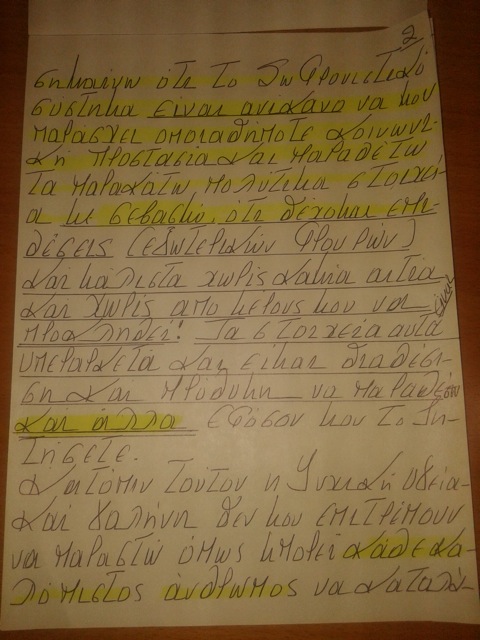 2
σημαίνω ότι το Σωφρονιστικό
σύστημα είναι ανίκανο να μου
παράσχει οποιαδήποτε κοινωνι-
κή προστασία και παραθέτω
τα παρακάτω πολύτιμα στοιχεί-
α με σεβασμό, ότι δέχομαι επι-
θέσεις (εξωτερικών φρουρών)
και μάλιστα χωρίς καμία αιτία
και χωρίς από μέρους μου να είχαν
προκληθεί! Τα στοιχεία αυτά
υπεραρκετά και είμαι διαθέσι-
μη και πρόθυμη να παραθέσω
και άλλα εφόσον μου το ζη-
τήσετε.
κατόπιν τούτου η ψυχική υγεία
και γαλήνη δεν μου επιτρέπουν
να παραστώ όμως μπορεί κάθε κα-
λόπιστος άνθρωπος να καταλά-